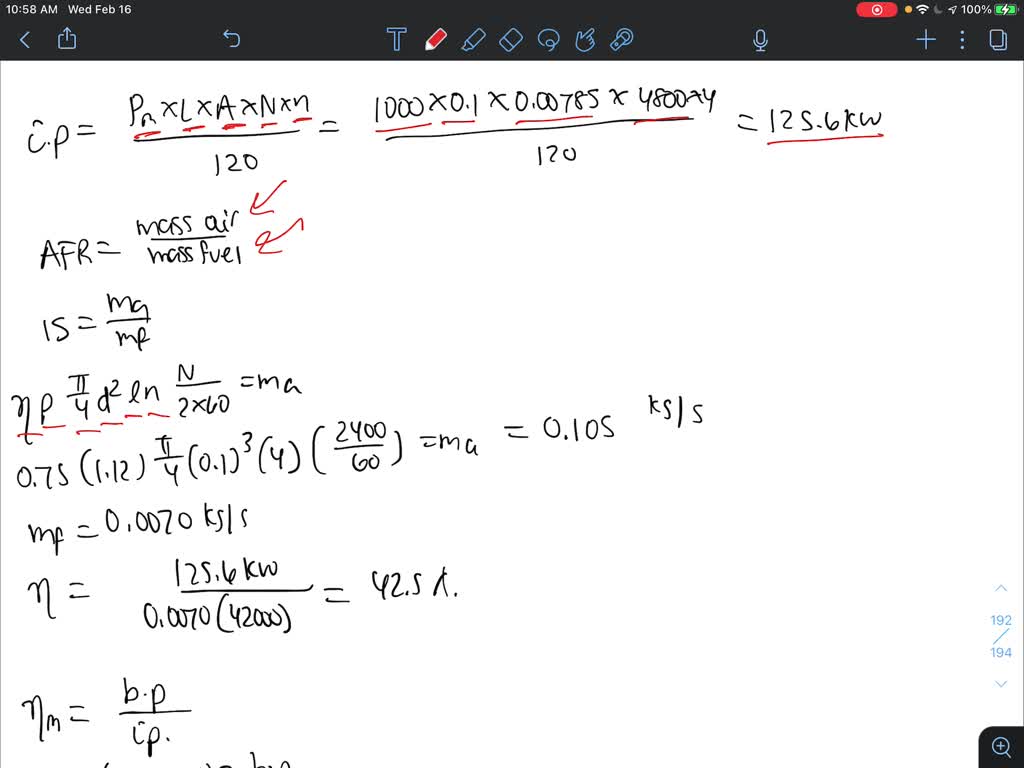 10:58 AM Wed Feb 16
100%
i.p = Pm×L×A×N×n / 120 = 1000×0.1×0.00785×4800×4 / 120 = 125.6 kW
AFR = mass air / mass fuel
15 = ma / mf
η ρ π/4 d² l n N / 2×60 = ma
0.75 (1.12) π/4 (0.1)³ (4) (2400/60) = ma = 0.105 kg/s
mf = 0.0070 kg/s
η = 125.6 kW / 0.0070 (42000) = 42.5 %.
192
/
194
ηm = b.p / i.p.